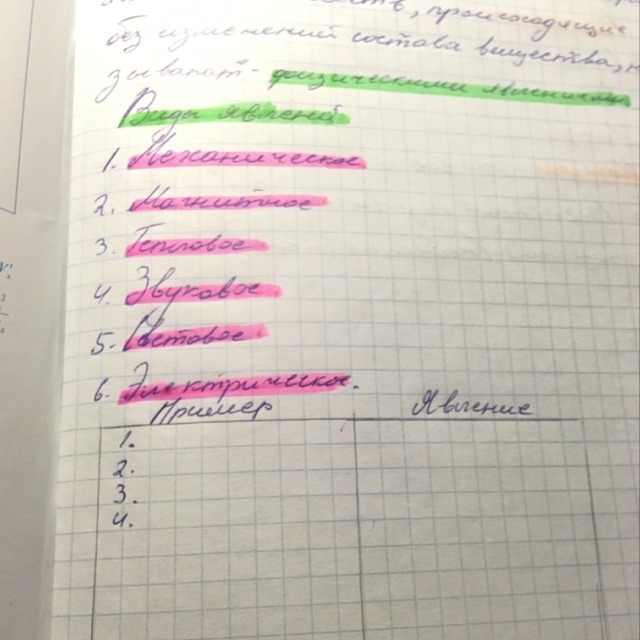 происходящие
без изменений состава вещества, н
зывают - физическими явлениями
Виды явлений
1. Механическое
2. Магнитное
3. Тепловое
4. Звуковое
5. Световое
6. Электрическое.
Пример Явление
1.
2.
3.
4.